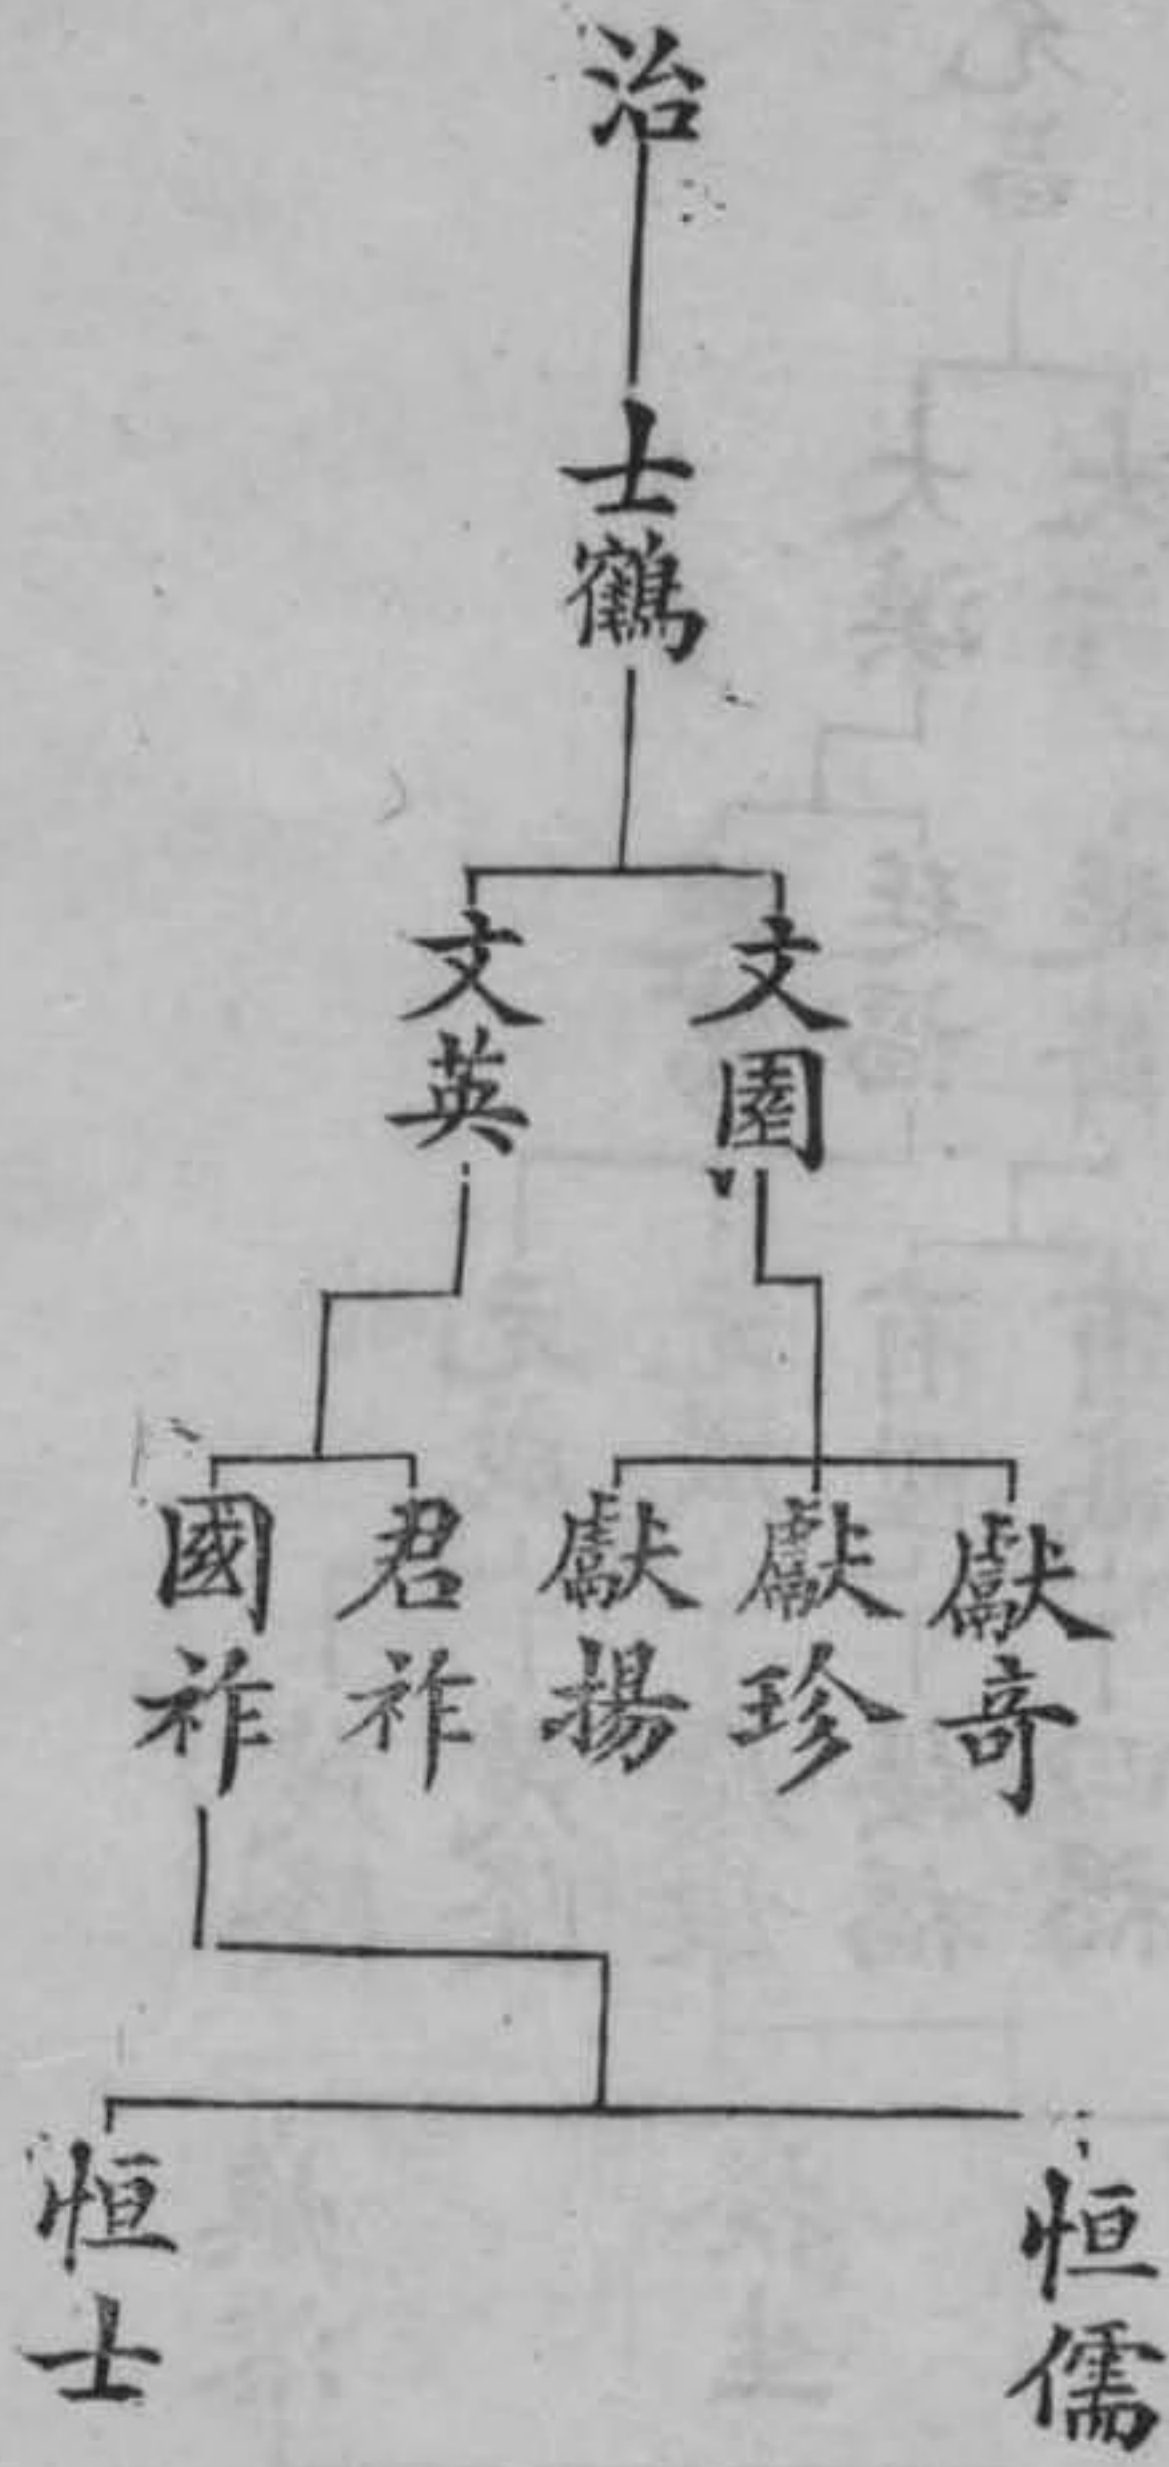 治
士鶴
文園
文英
獻奇
獻珍
獻揚
君祚
國祚
恒儒
恒士